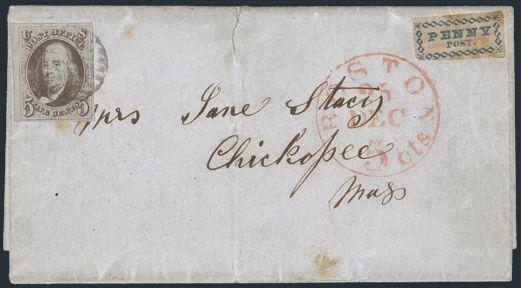 POST OFFICE
5 FIVE CENTS 5
PENNY
POST.
BOSTON
25
DEC
5 cts
Mrs Jane Stacy
Chickopee
Mass